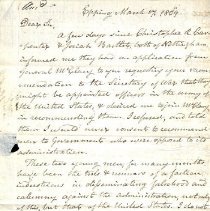 Epping March 17 1809
Dear Sir
A few days since Christopher R. Car
penter & Josiah Bartlet, both of Nottingham
informed me they had an application from
General McClary to you requesting your recom
mendation to the Secretary of war that they
might be appointed officers in the army of
the United States, & wished me
in recommending them. I refused, and told
them I would never consent to recommend
men to Government who were opposed to its
administration.
These two young men for many months
have been the tools & runners of a faction
industrious in disseminating falsehood and
calumny against the administration, not only
of this but that of the United States. I do not